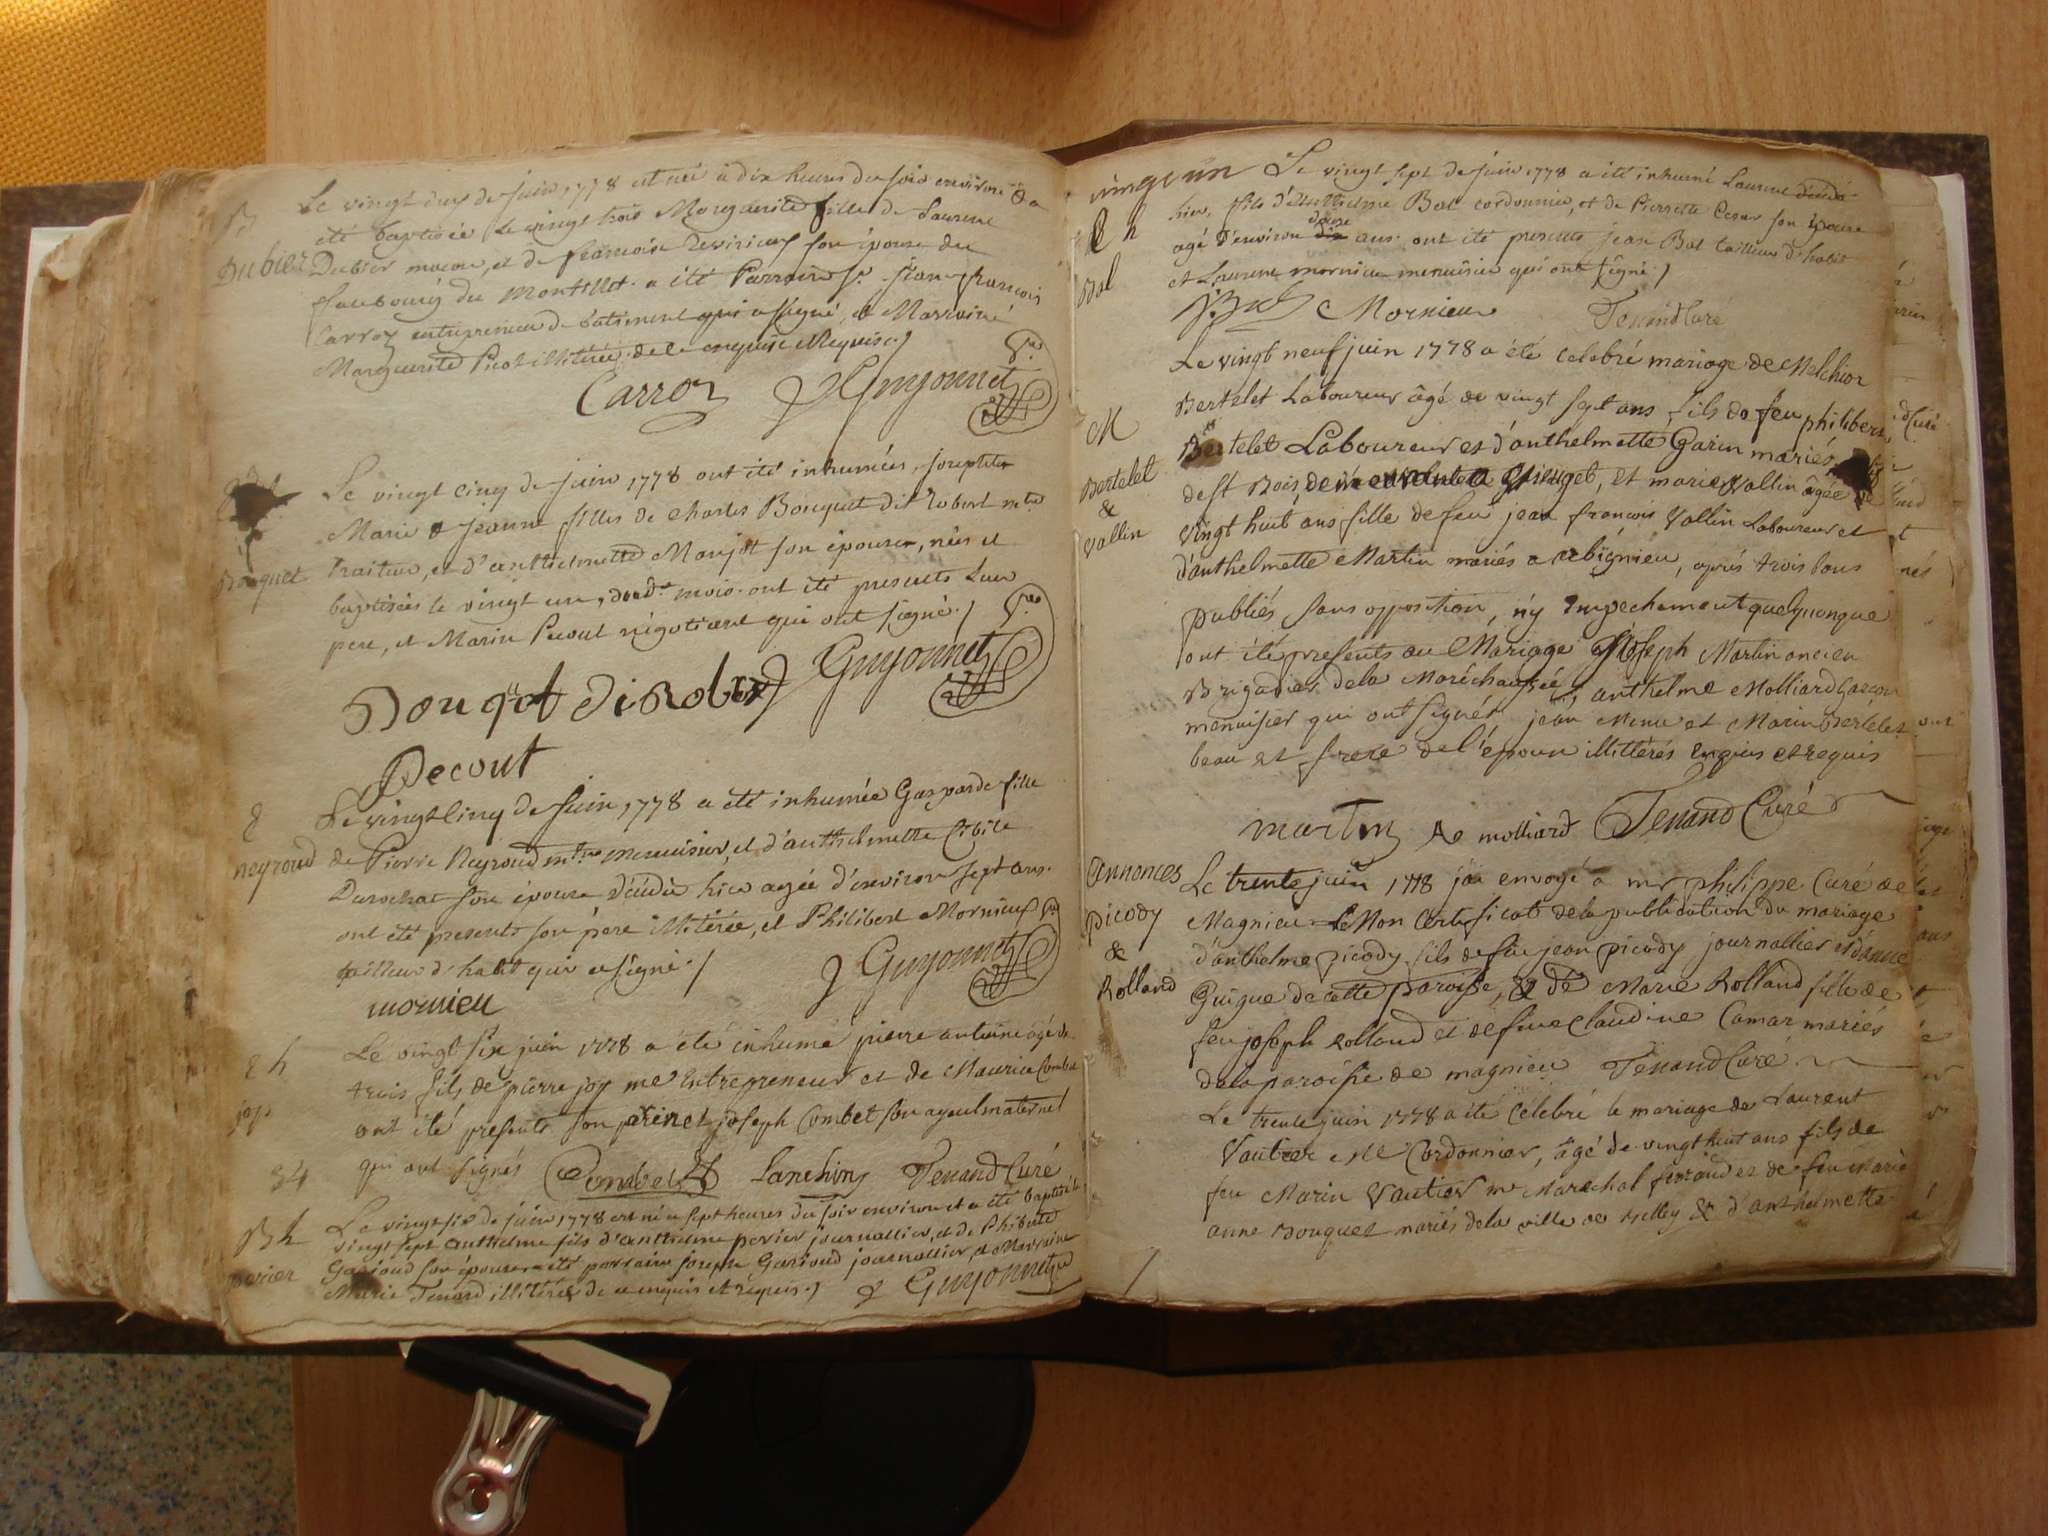 B
Dubier
Le vingt deux de juin 1778 est née à dix heures du soir environ & a
été baptisée le vingt trois Marguerite fille de Laurent
Dubier maçon, et de françoise son épouse du
faubourg du Montillet. a été Parrain Sr. jean françois
Carroz entrepreneur de batiment qui a signé, et Marraine
Marguerite Picot illitérée de ce enquise et Requise./
Carroz J Guyonnet
Bouquet
Le vingt cinq de juin 1778 ont été inhumées, josephte
Marie & jeanne filles de charles Bouquet dit Robert me
traiteur, et d'anthelmette Marjot son épouse, nées et
baptisées le vingt un, dud. mois. ont été presents Leur
pere, et Marin Pecout négotiant qui ont signé./
Bouquet di Robert J Guyonnet
Pecout
neyroud
Le vingt cinq de juin 1778 a été inhumée Gasparde fille
de Pierre Neyroud menuisier, et d'anthelmette Cibile
Durochat son épouse décédée hier agée d'environ sept ans.
ont été presents son père illitérée, et Philibert Mornieux
tailleur d'habit qui a signé./
mornieu J Guyonnet
joy
Le vingt six juin 1778 a été inhumé pierre antoine âgé de
trois fils de pierre joy me Entrepreneur et de Maurice Combet
ont été présents son père et joseph Combet son ayeul maternel
qui ont signés Combet Lanchiny Tenand Curé
34
B h
perier
Le vingt six de juin 1778 est né a sept heures du soir environ et a été baptisé le
vingt sept anthelme fils d'anthelme perier journallier, et de Phiberte
Garioud son épouse a été parrain joseph Garioud journallier, et Marraine
Marie Tenard illitérés de ce enquis et réquis./ J Guyonnet
vingt un
h
Bal
Le vingt sept de juin 1778 a été inhumé Laurent décédé
hier, fils d'Anthelme Bal cordonnier, et de Pierrette Cesar son épouse
agé d'environ dix douze ans. ont été presents jean Bal tailleur d'habit
et Laurent mornieu menuisier qui ont signé./
J. Bal Mornieu Tenand Curé
M
Bertelet
&
Vallin
Le vingt neuf juin 1778 a été celebré mariage de Melchior
Bertelet Laboureur âgé de vingt sept ans fils de feu philibert
Bertelet Laboureur et d'anthelmette Garin mariés
de st Bois, et marie Vallin âgée de
vingt huit ans fille de feu jean françois Vallin Laboureur et
d'anthelmette Martin mariés a rebignieu, après trois bans
publiés sans opposition, n'y Empechement quelquonque
ont été présents au Mariage Joseph Martin ancien
Brigadier de la Maréchaussée, anthelme Molliard garçon
menuisier qui ont signés, jean Menu et Marin Bertelet
beau et frere de l'époux illittérés enquis et requis
martin Ae molliard Tenand Curé
annonces
picody
&
Rolland
Le trente juin 1778 jai envoyé a mr philippe Curé de
Magnieu Mon Certificat de la publication du mariage
d'anthelme picody fils de feu jean picody journallier et d'anne
Guigue de cette paroisse, & de Marie Rolland fille de
feu joseph Rolland et de feue Claudine Camar mariés
de la paroisse de magnieu Tenand Curé
Le trente juin 1778 a été célébré le mariage de Laurent
Vautier Me Cordonnier, âgé de vingt huit ans fils de
feu Marin Vautier me Marechal ferrand et de feu Marie
anne Bouquet mariés de la ville de Belley & d'anthelmette